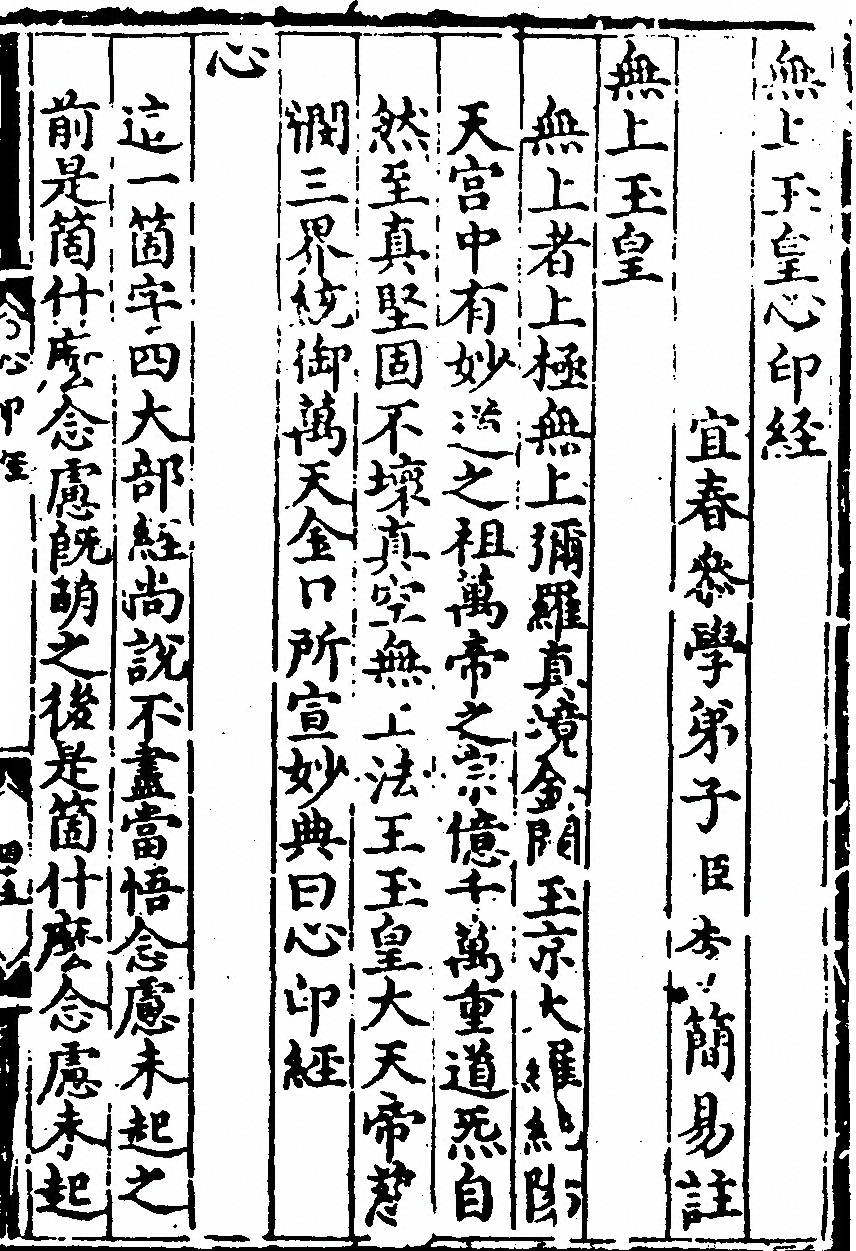 無上玉皇心印経
宜春叅學弟子臣李簡易註
無上玉皇
無上者上極無上彌羅真境金闕玉京大羅
天宮中有妙道之祖萬帝之宗億千萬重道炁自
然至真堅固不壞真空無上法王玉皇大天帝慈
憫三界統御萬天金口所宣妙典曰心印經
心
這一箇字四大部經尚說不盡當悟念慮未起之
前是箇什麼念慮旣萌之後是箇什麼念慮未起
心印經
四十五